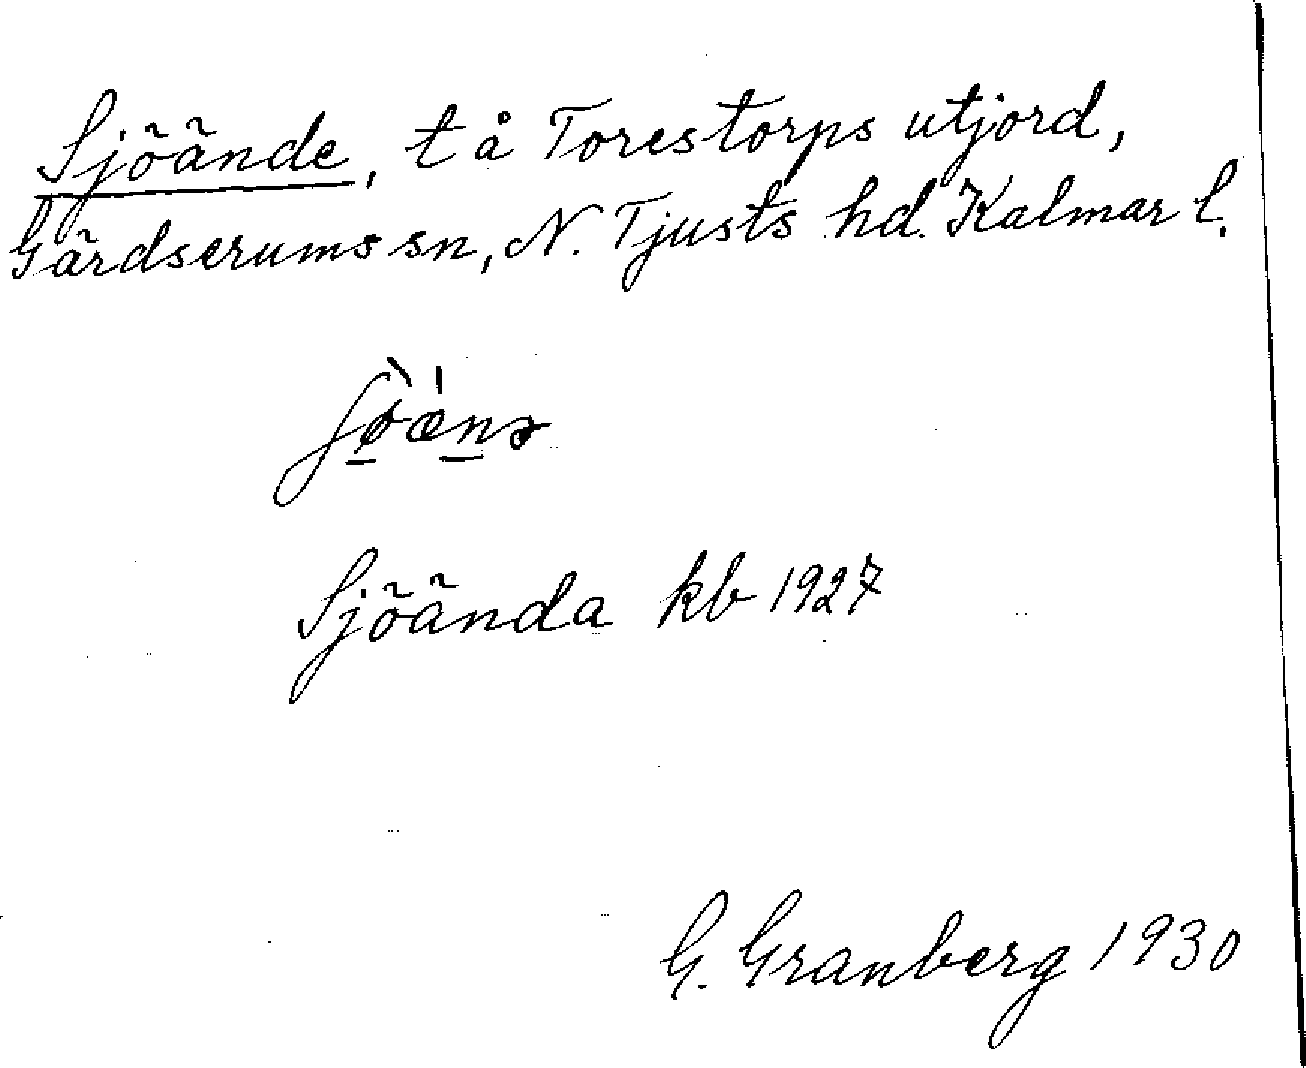 Sjöände, t å Torestorps utjord,
Gärdserums sn, N. Tjusts hd. Kalmar l.
ʃø̀æ̍nə
Sjöända kb 1927
G. Granberg 1930